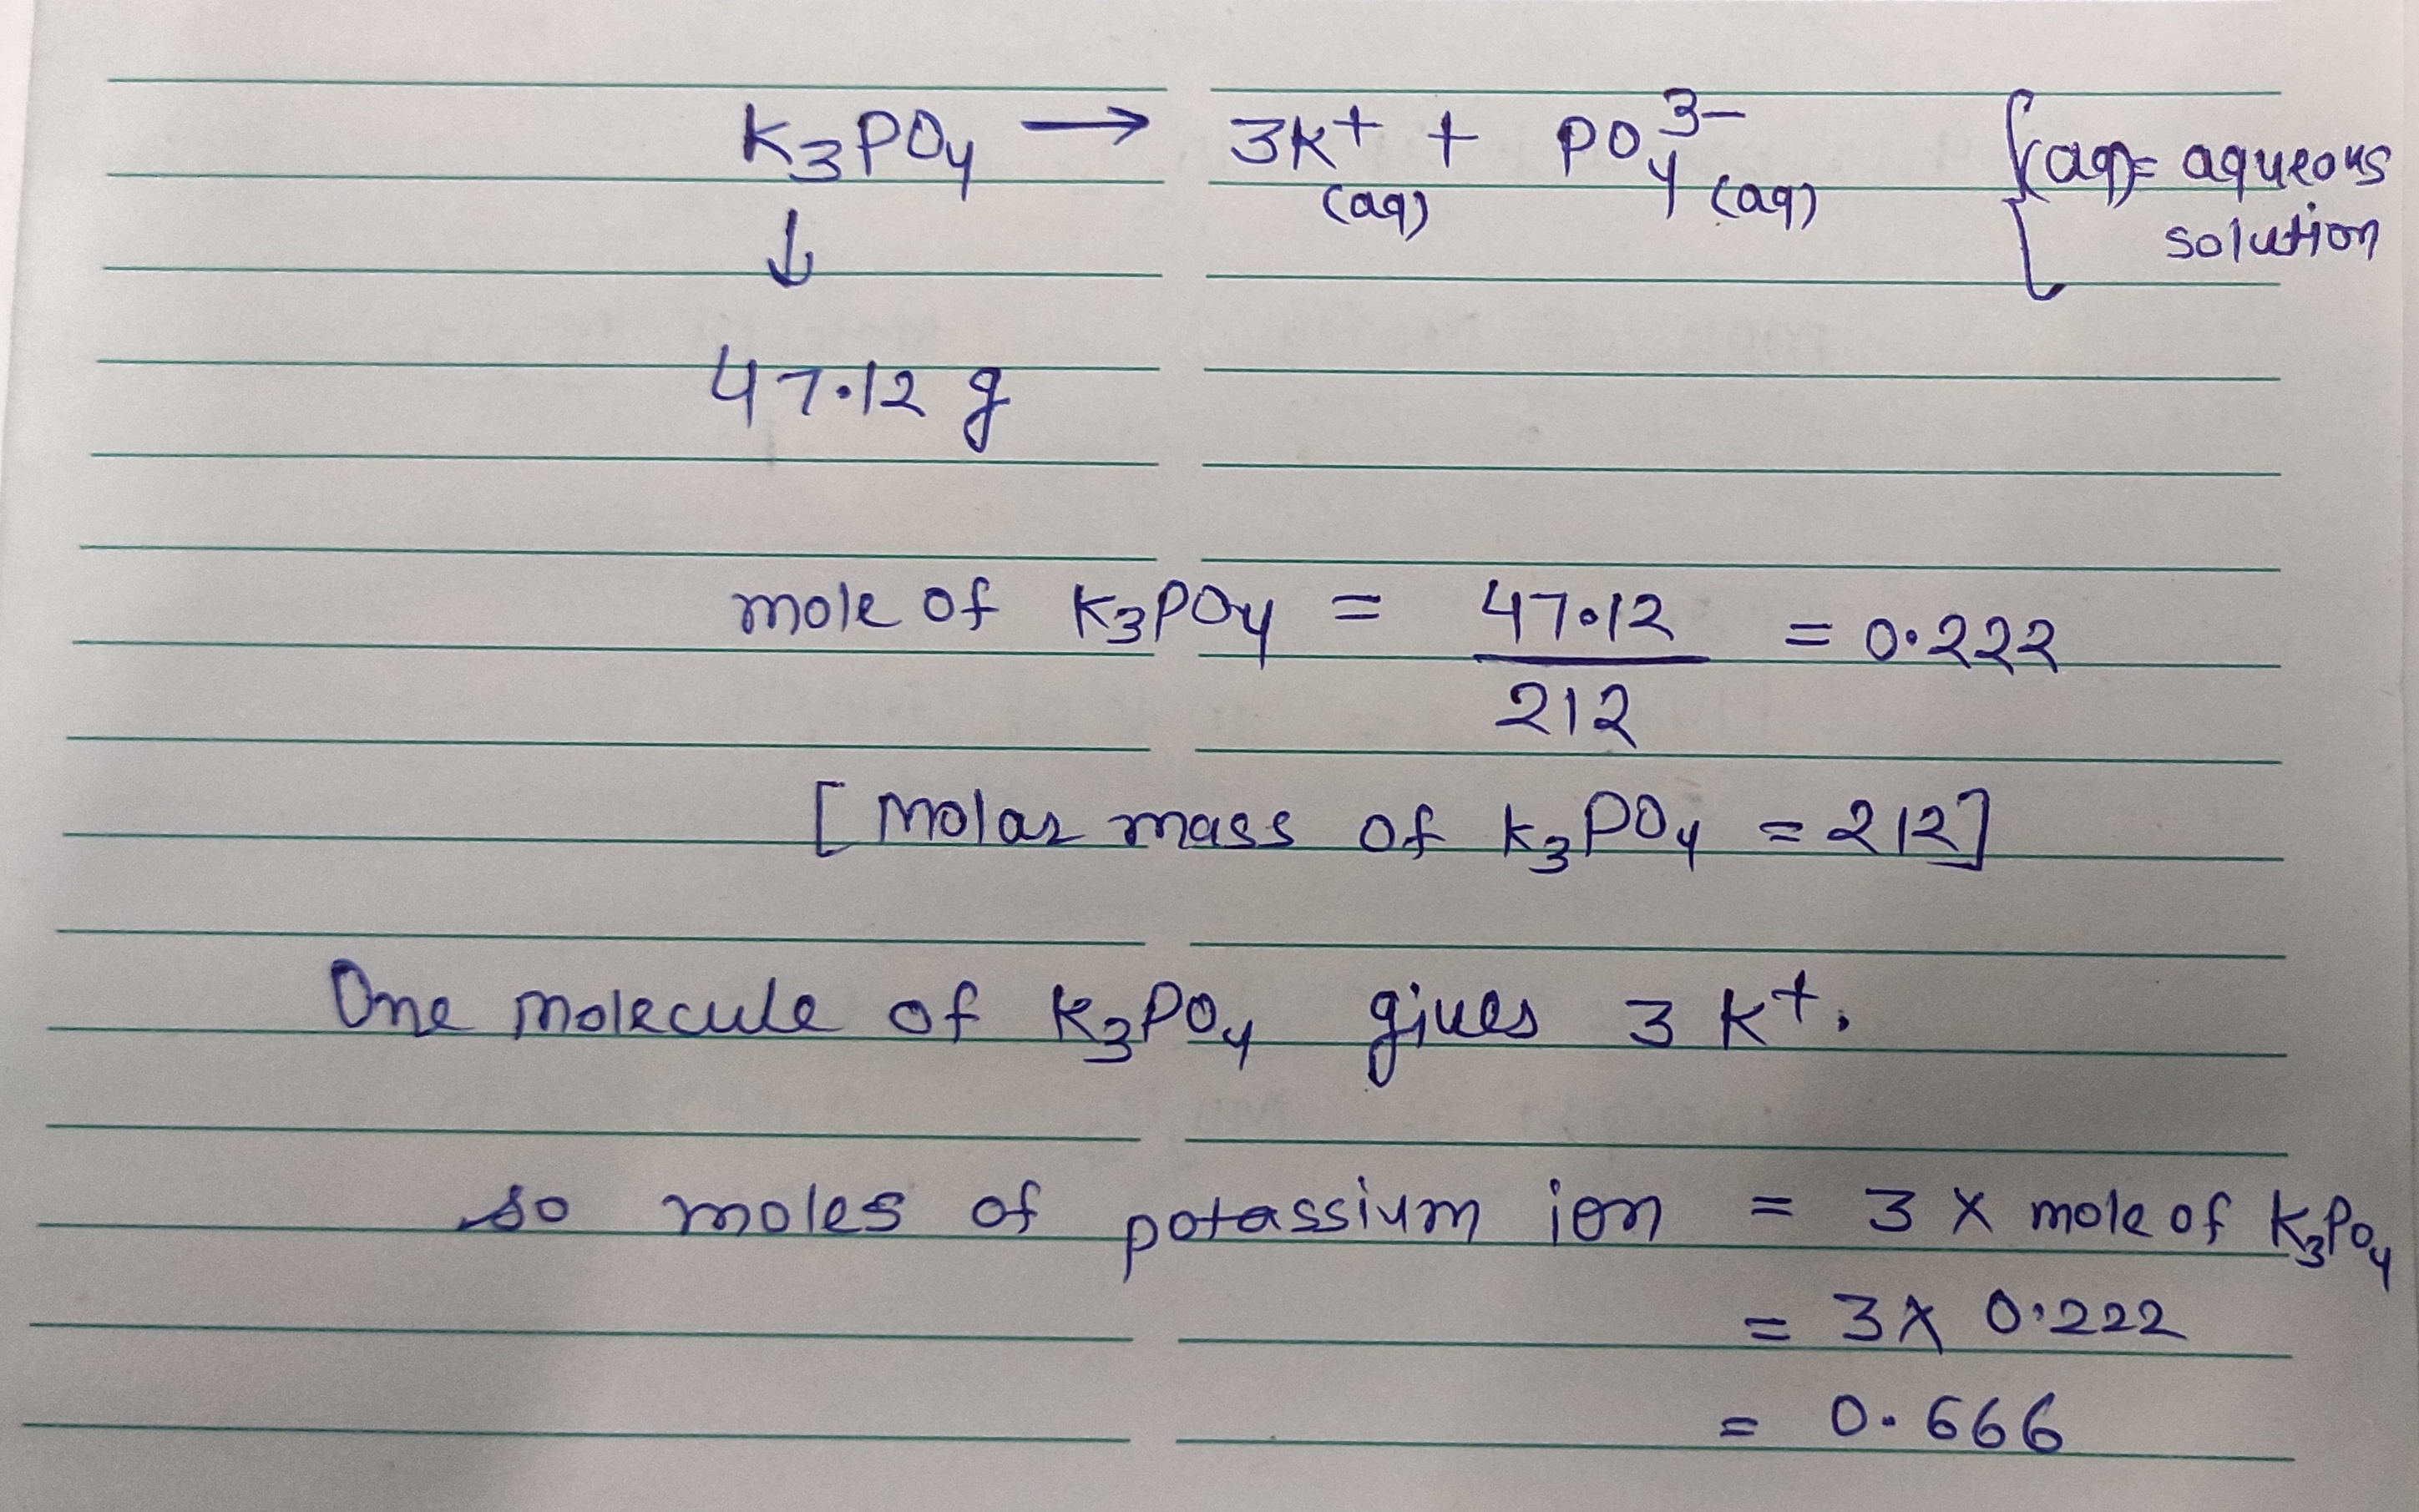 K₃PO₄ → 3K⁺(aq) + PO₄³⁻(aq) {(aq) = aqueous solution
↓
47.12 g
mole of K₃PO₄ = 47.12 / 212 = 0.222
[Molar mass of K₃PO₄ = 212]
One molecule of K₃PO₄ gives 3 K⁺.
so moles of potassium ion = 3 × mole of K₃PO₄
= 3 × 0.222
= 0.666